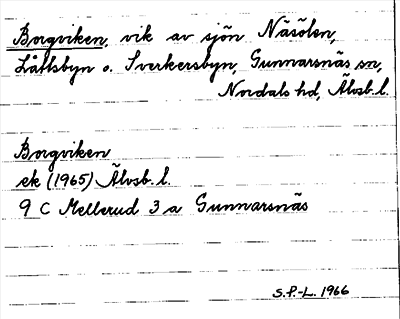 Borgviken, vik av sjön Näsölen,
Låltsbyn o. Sverkersbyn, Gunnarsnäs sn,
Nordals hd, Älvsb. l.
Borgviken
ek (1965) Älvsb. l.
9 C Mellerud 3 a Gunnarsnäs
S.P.-L. 1966